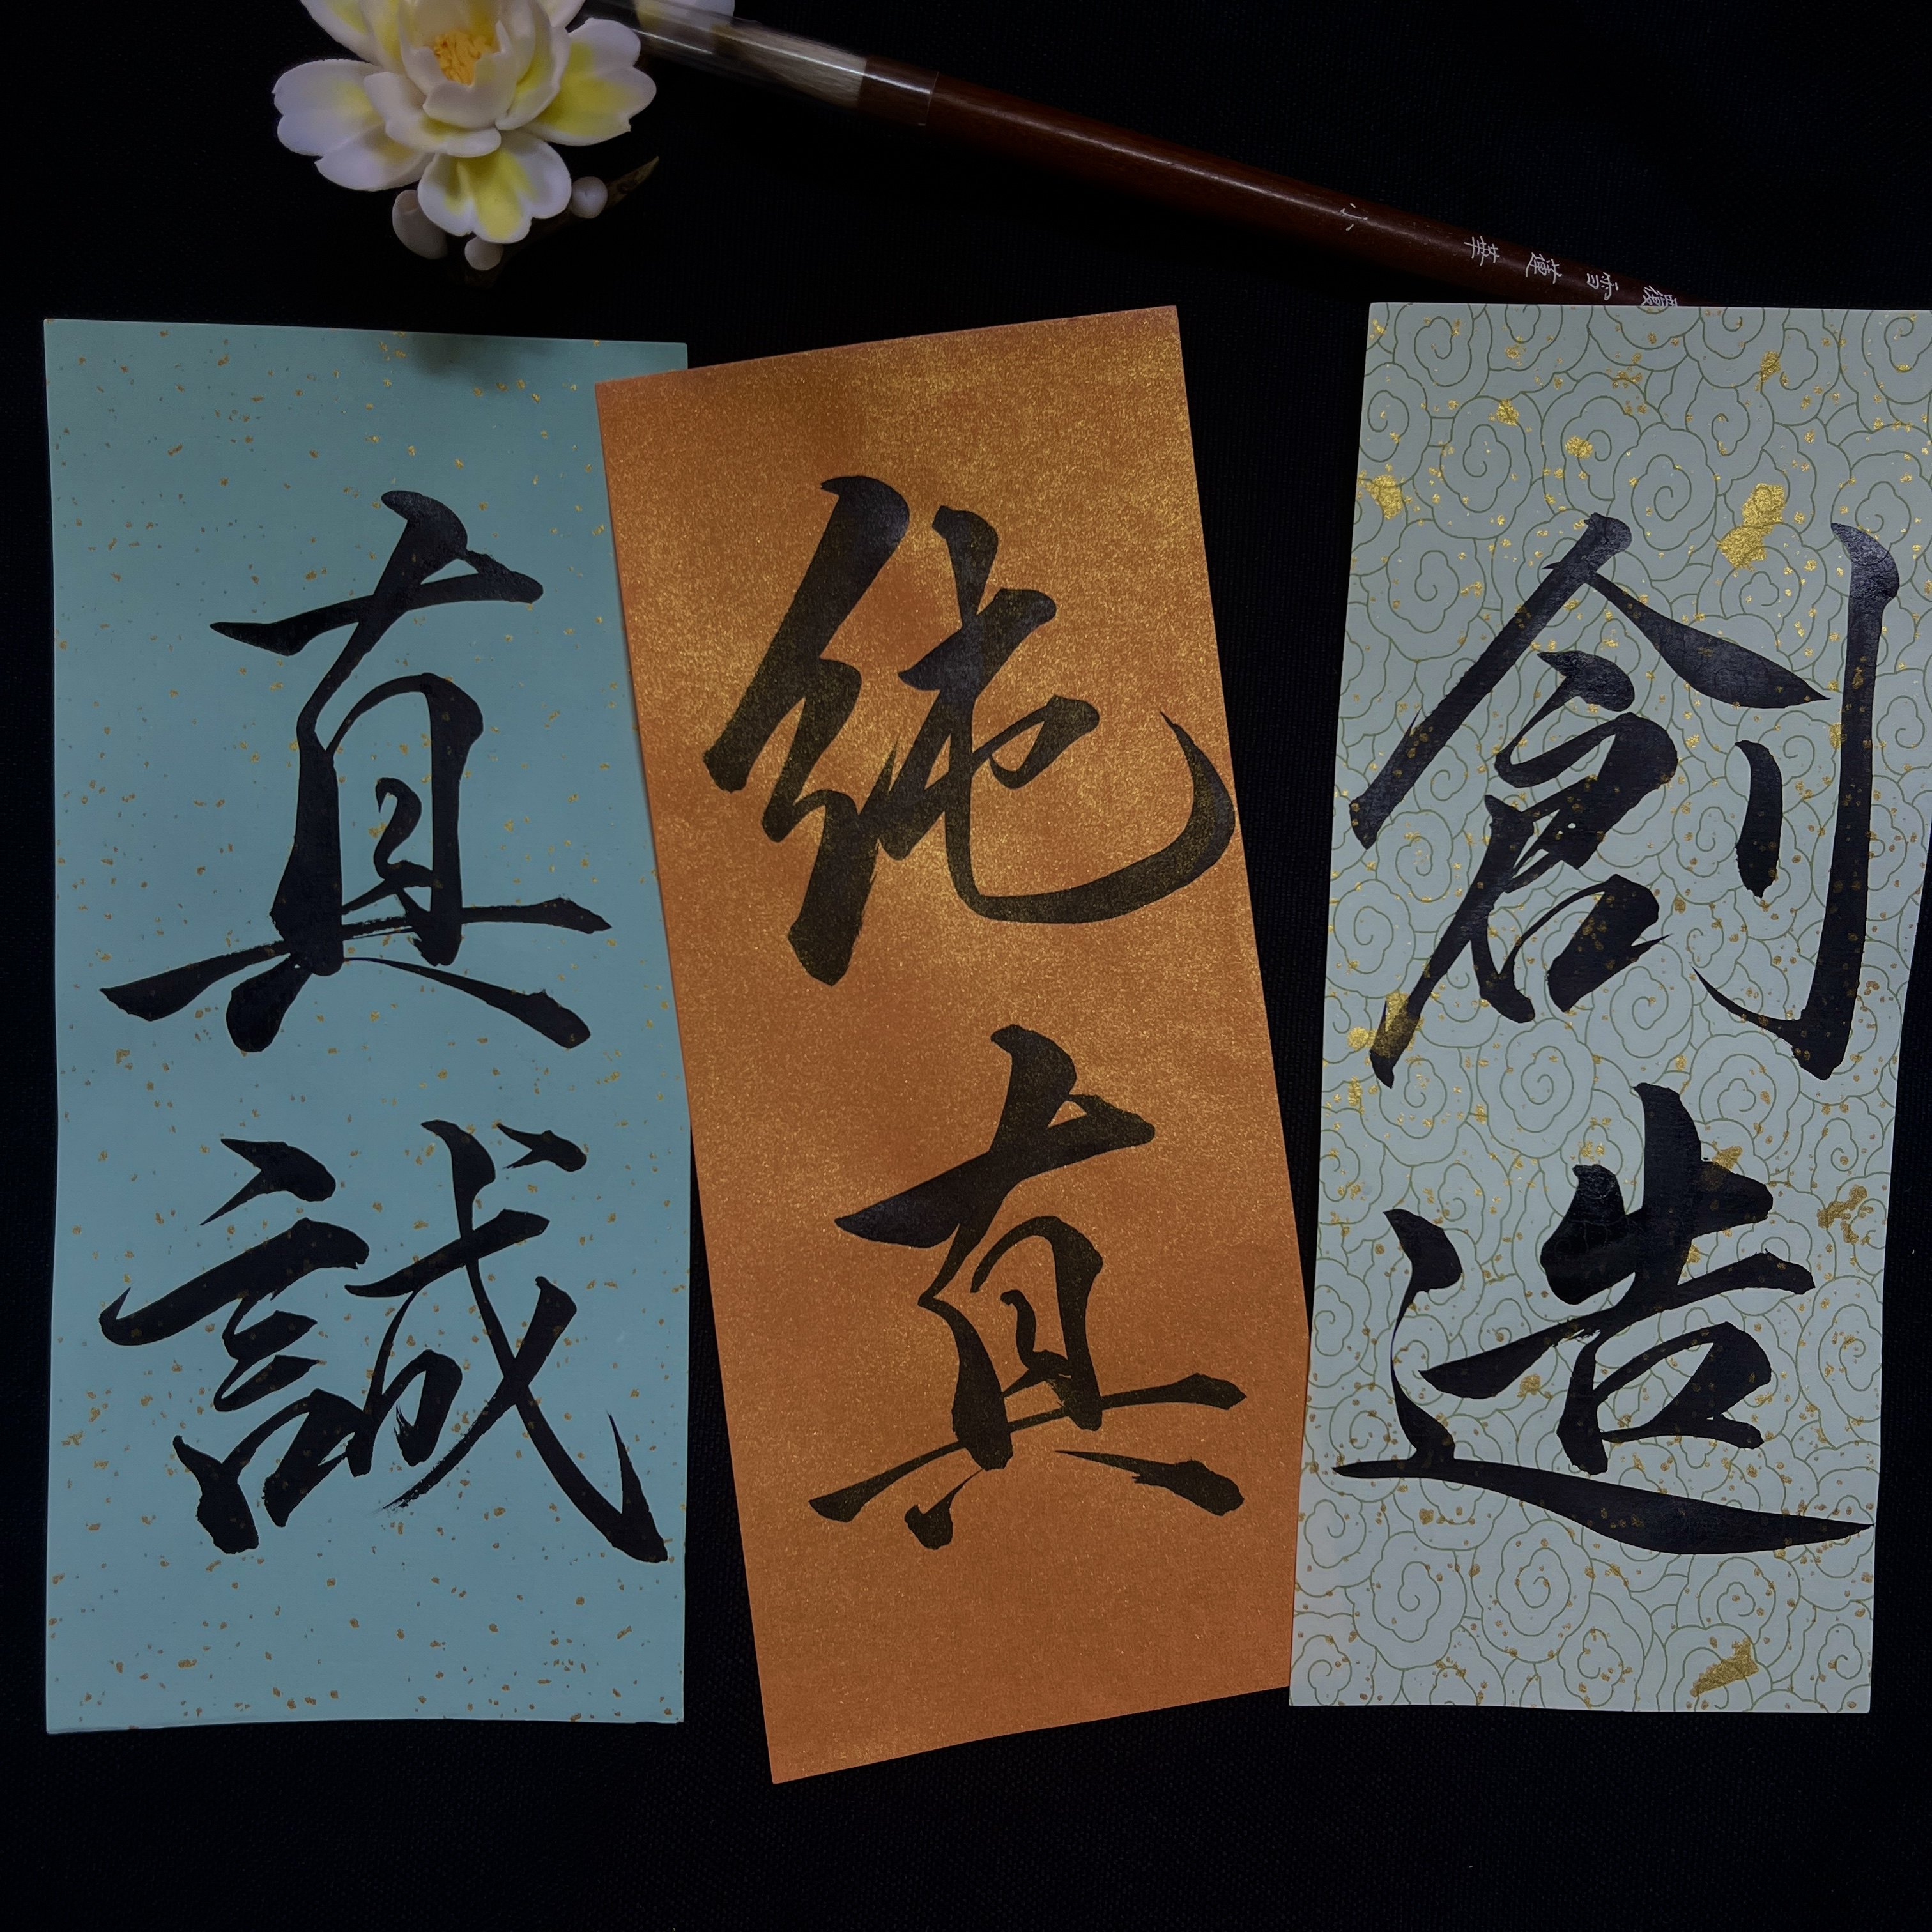 真誠
純真
創造
小